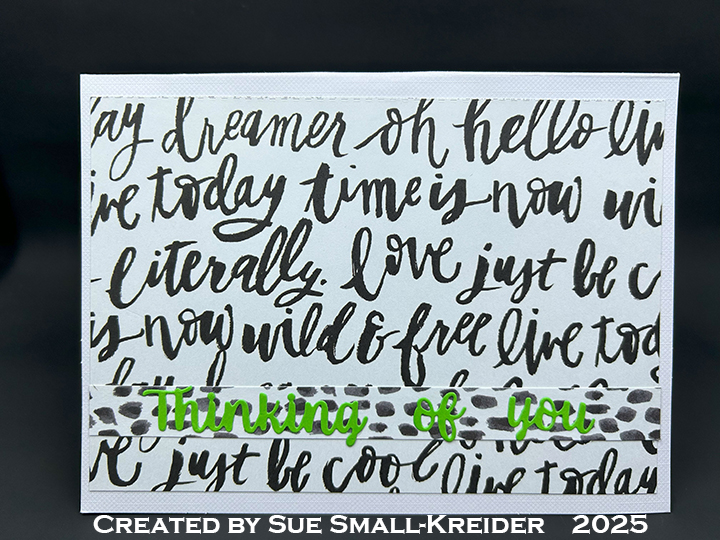 ay dreamer oh hello liv
ive today time is now wi
literally. love just be c
is now wild & free live tod
Thinking of you
ve just be cool live today
Created by Sue Small-Kreider 2025